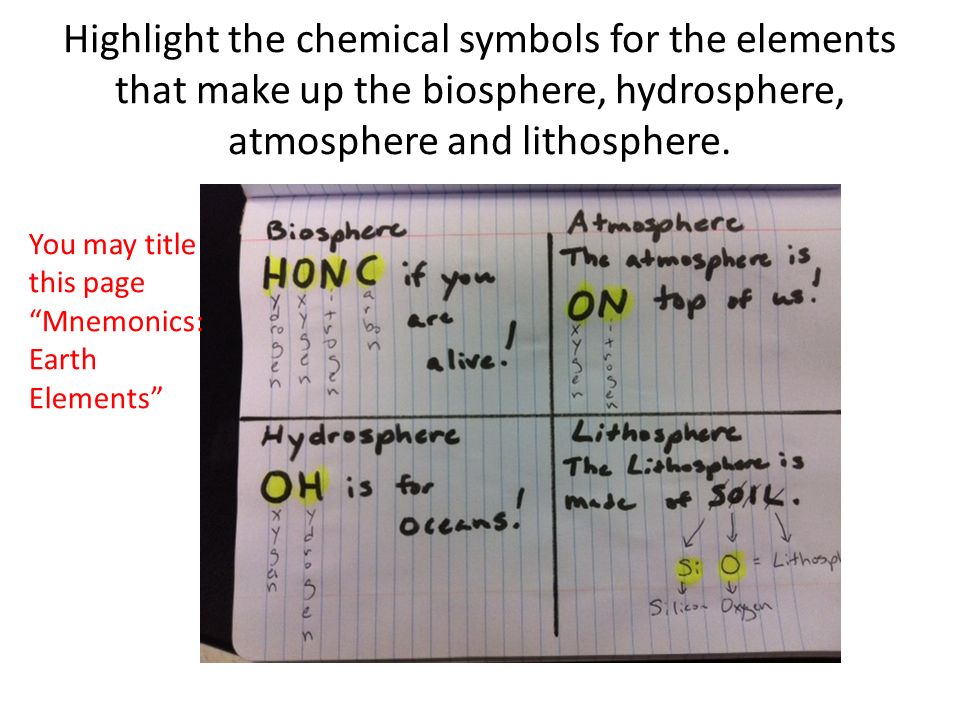 Highlight the chemical symbols for the elements
that make up the biosphere, hydrosphere,
atmosphere and lithosphere.
You may title
this page
“Mnemonics:
Earth
Elements”
Biosphere
HONC if you
are
alive!
ydrogen
xygen
itrogen
arbon
Atmosphere
The atmosphere is
ON top of us!
xygen
itrogen
Hydrosphere
OH is for
oceans!
xygen
ydrogen
Lithosphere
The Lithosphere is
made of SOIL.
Si O = Lithosph
Silicon Oxygen